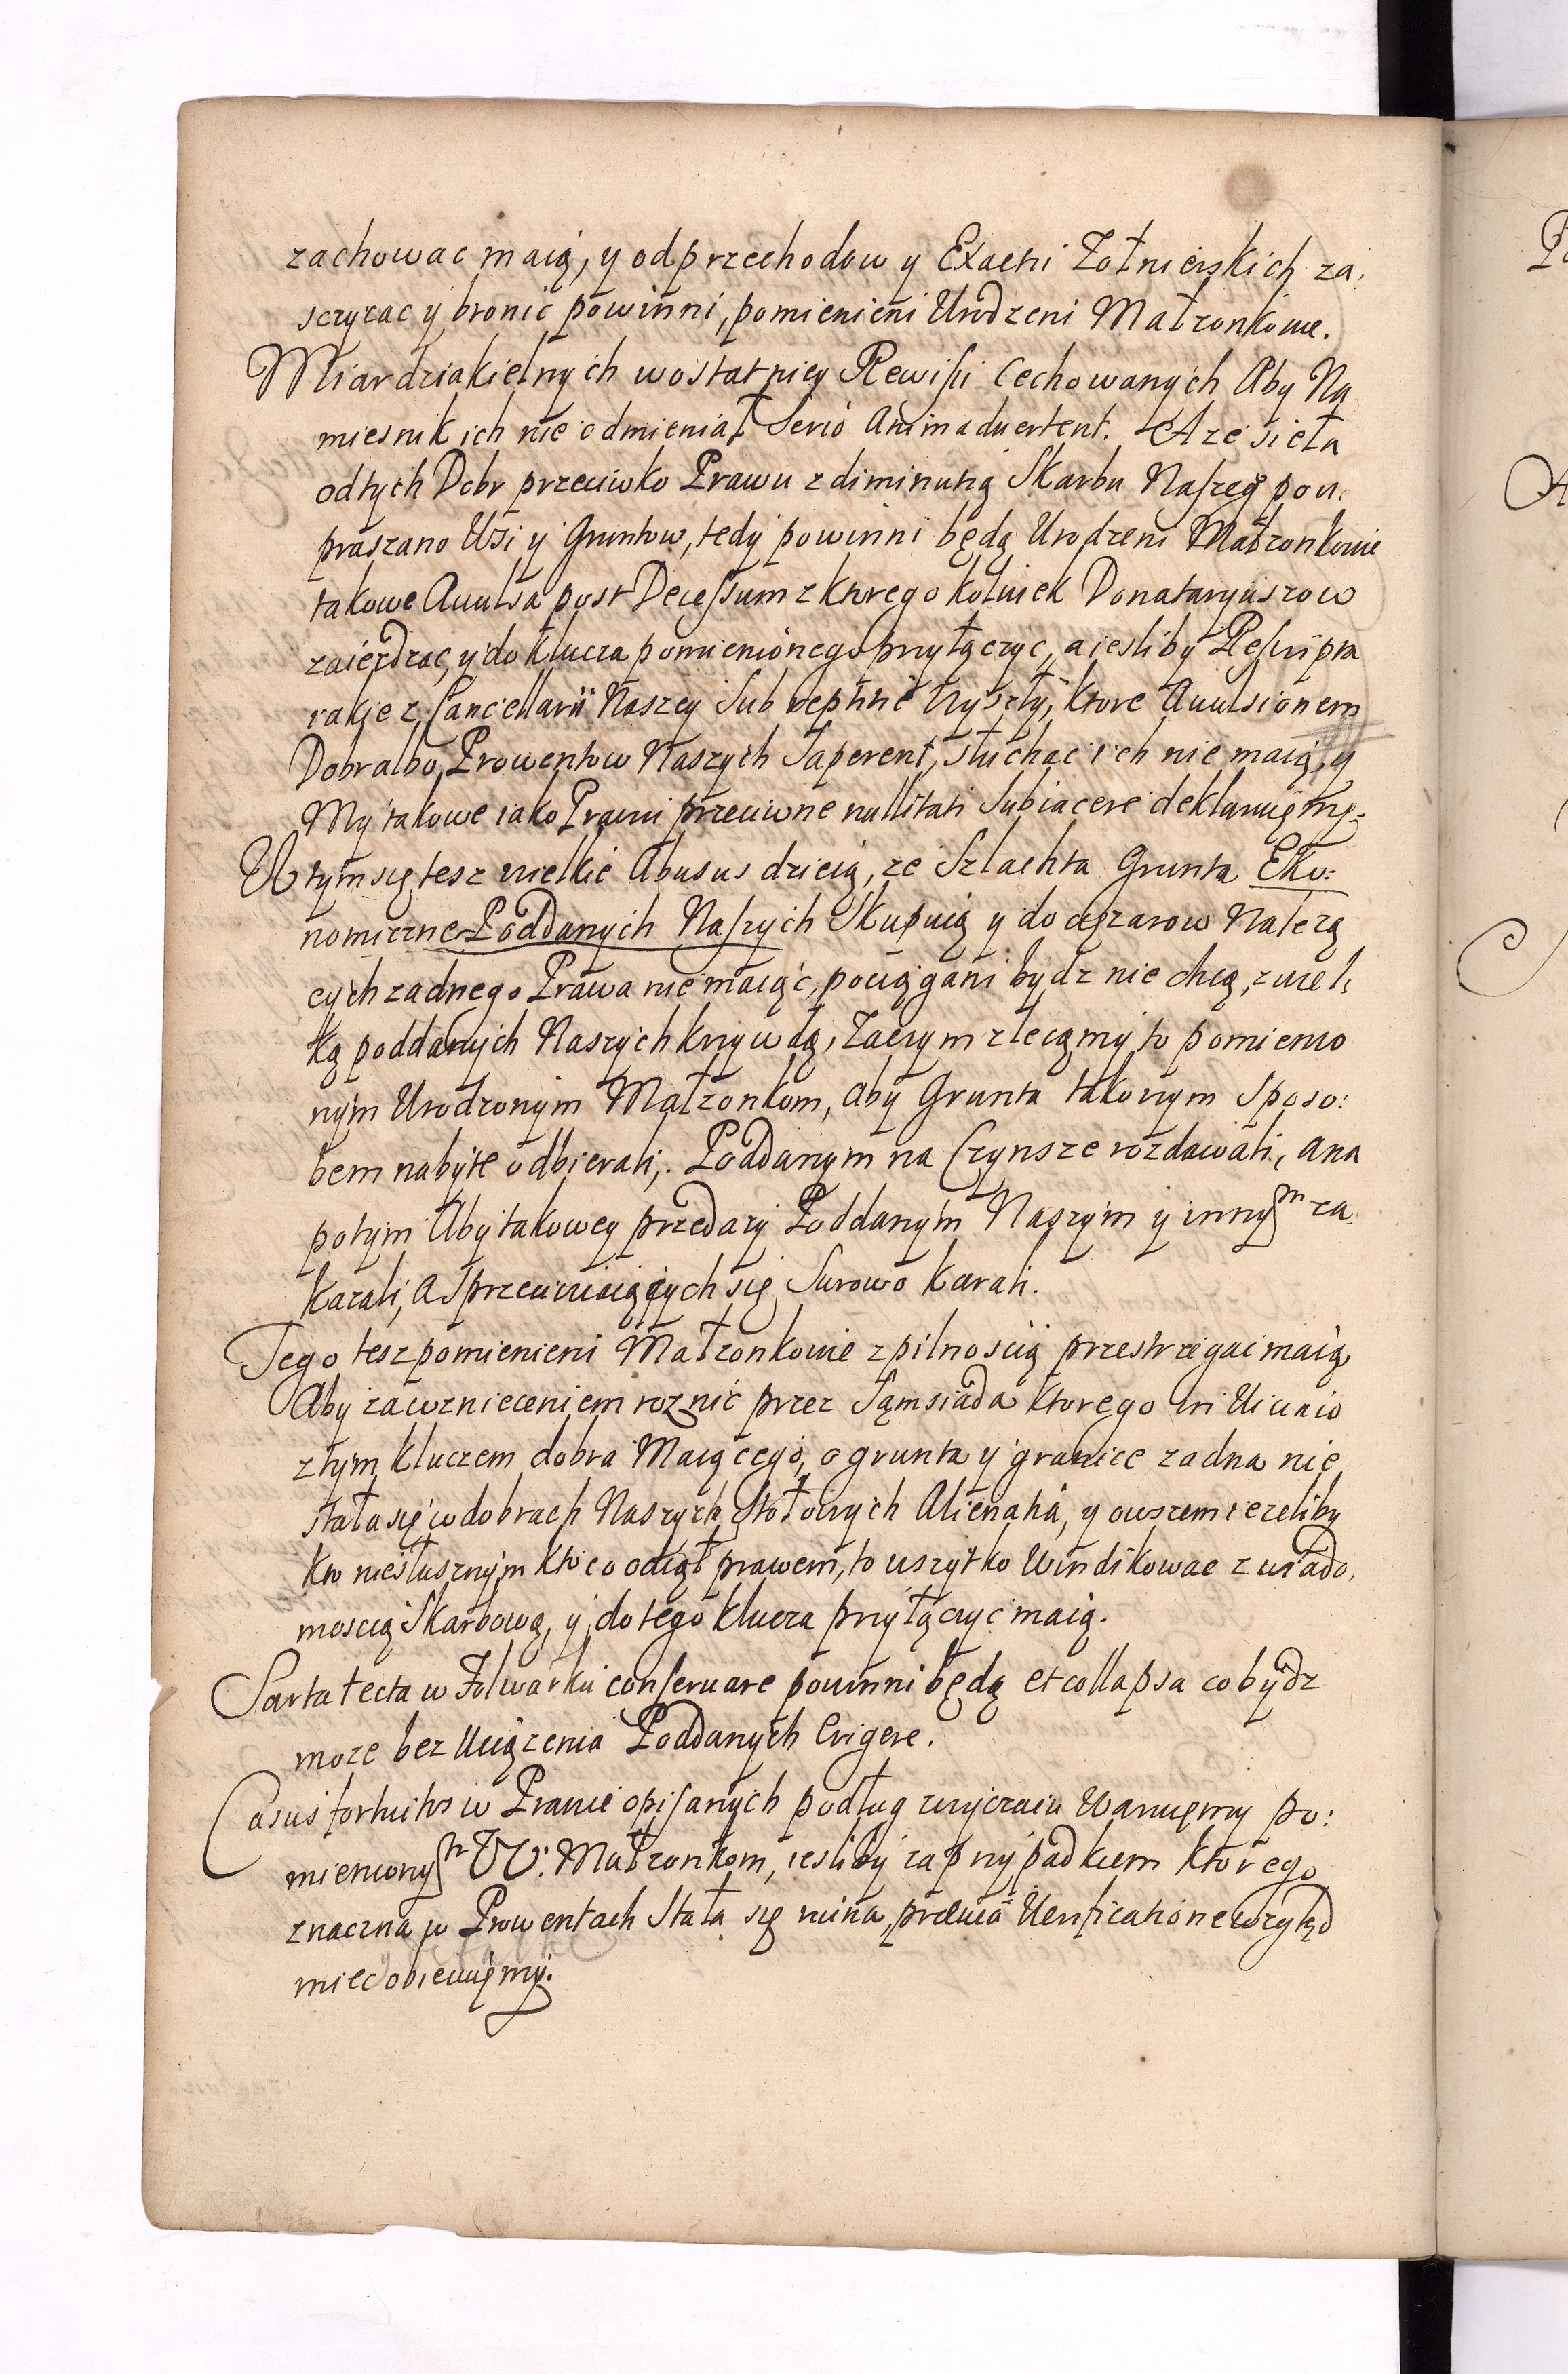 zachowac maią, y od przechodow y Exactii Zołnierskich za,
sczyzac y bronic powinni, pomienieni Urodzeni Małzonkowie.
Miar dziakielnych w ostatniey Rewisii Cechowanych Aby Na
miesnik ich nie odmieniał Serio Animaduertent. A ze sieła
od tych Dobr przeciwko Prawu z diminutią Skarbu Naszeg pou,
praszano Wsi y Gruntow, tedy powinni będą Urodzeni Małzonkowie
takowe Auulsa post Decessum z ktorego kolwiek Donataryuszow
zaiezdzac, y do Klucza pomienionego przyłączyc, a iesliby Reskripta
iakie z Cancellarii Naszey Sub reptitie Wyszły, ktore Auulsionem
Dobr albo Prowentow Naszych Saperent, słuchac ich nie maią, y
My takowe iako Prawu przeciwne nullitati Subiacere deklaruięmy.
W tym się tesz wielkie Abusus dzieią, ze Szlachta Grunta Eko:
nomiczne Poddanych Naszych Skupuią y do cięzarow Nalezą
cych zadnego Prawa nie maiąc, pociągani bydz nie chcą, z wiel,
ką poddanych Naszych krzywdą, Zaczym zlecamy to pomienio
nym Urodzonym Małzonkom, aby Grunta takowym Sposo:
bem nabyte odbierali, Poddanym na Czynsze rozdawali, a na
potym Aby takowey przedazy Poddanym Naszym y innym za,
kazali, a sprzeciwiaiących się Surowo karali.
Tego tesz pomienieni Małzonkowie z pilnoscią przestrzegac maią
Aby za wznieceniem roznic przez Sąmsiada ktorego in Uicinio
z tym kluczem dobra Maiącego, o grunta y granice zadna nie
stała się w dobrach Naszych Stołowych Alienatia, y owszem iezeliby
kto niesłusznym kto co odiął prawem, to wszytko Windikowac z wiado,
moscią Skarbową, y do tego klucza przyłączyc maią.
Sarta tecta w Folwarku conseruare powinni będą et collapsa co bydz
moze bez Uciązenia Poddanych Erigere.
Casus fortuitos w Prawie opisanych podług zwyczaiu Waruięmy po:
mienionym UU. Małzonkom, iesliby za przypadkiem ktorego
znaczna w Prowentach Stała się ruina, præuia Uerificatione wzgląd
miec obiecuięmy.